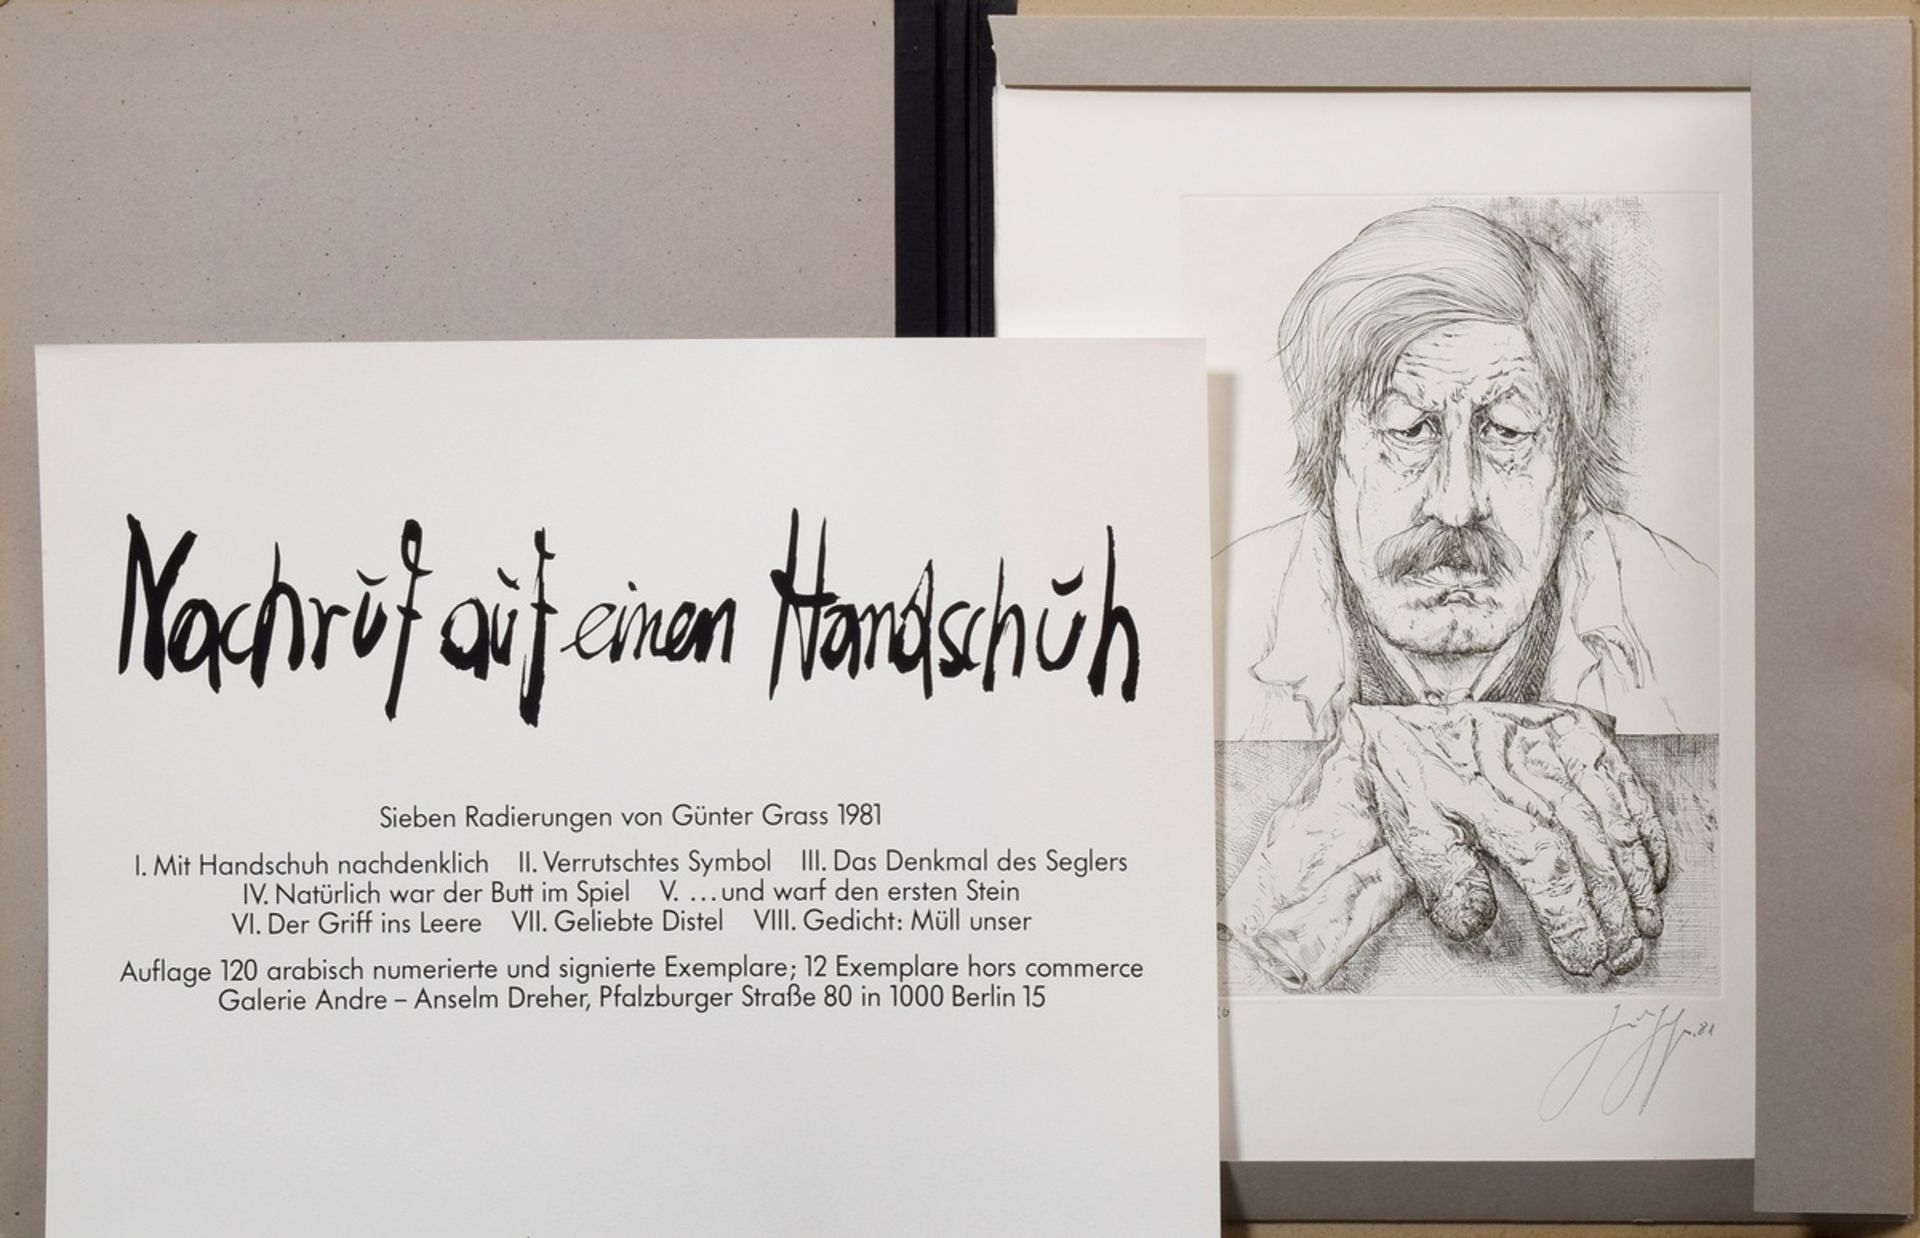 Nachruf auf einen Handschuh
Sieben Radierungen von Günter Grass 1981
I. Mit Handschuh nachdenklich II. Verrutschtes Symbol III. Das Denkmal des Seglers
IV. Natürlich war der Butt im Spiel V. ...und warf den ersten Stein
VI. Der Griff ins Leere VII. Geliebte Distel VIII. Gedicht: Müll unser
Auflage 120 arabisch numerierte und signierte Exemplare; 12 Exemplare hors commerce
Galerie Andre – Anselm Dreher, Pfalzburger Straße 80 in 1000 Berlin 15